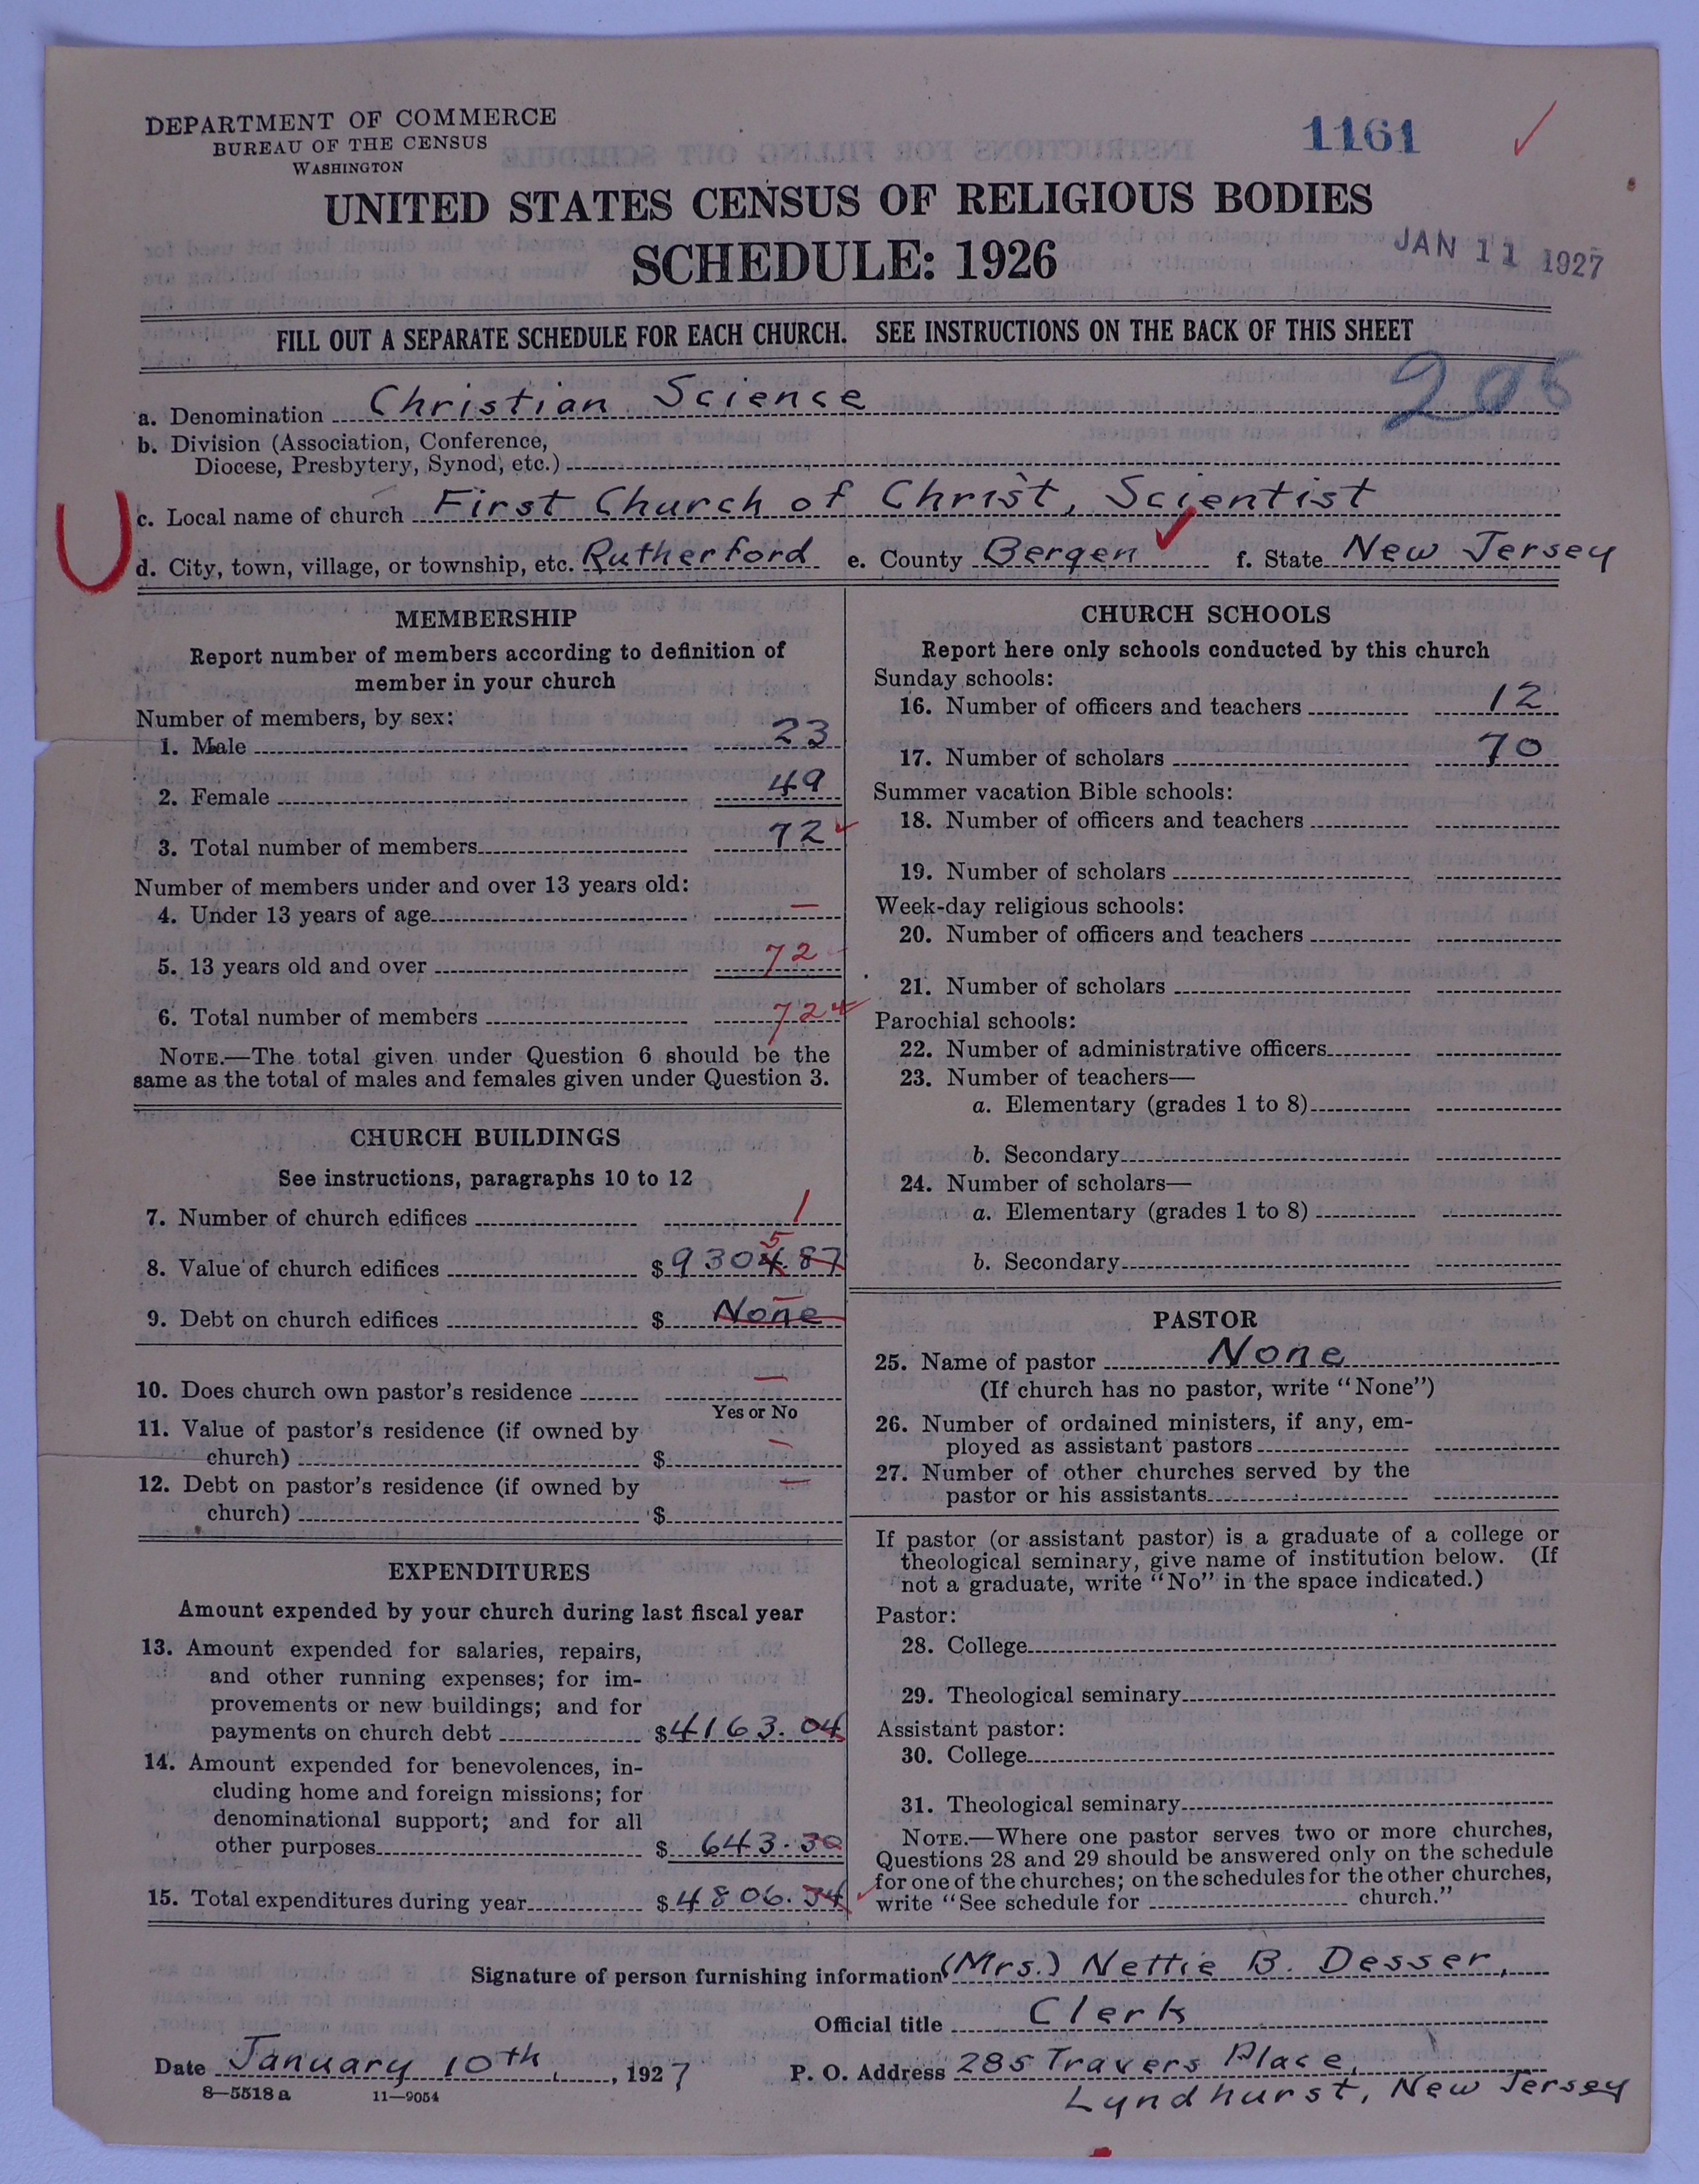 DEPARTMENT OF COMMERCE
BUREAU OF THE CENSUS
WASHINGTON
1161
UNITED STATES CENSUS OF RELIGIOUS BODIES
SCHEDULE: 1926
JAN 11 1927
FILL OUT A SEPARATE SCHEDULE FOR EACH CHURCH. SEE INSTRUCTIONS ON THE BACK OF THIS SHEET
206
a. Denomination Christian Science
b. Division (Association, Conference,
Diocese, Presbytery, Synod, etc.)
c. Local name of church First Church of Christ, Scientist
d. City, town, village, or township, etc. Rutherford e. County Bergen f. State New Jersey
MEMBERSHIP
Report number of members according to definition of
member in your church
Number of members, by sex:
1. Male 23
2. Female 49
3. Total number of members 72
Number of members under and over 13 years old:
4. Under 13 years of age —
5. 13 years old and over 72
6. Total number of members 72
NOTE.—The total given under Question 6 should be the
same as the total of males and females given under Question 3.
CHURCH BUILDINGS
See instructions, paragraphs 10 to 12
7. Number of church edifices 1
5
8. Value of church edifices $ 9304.87
9. Debt on church edifices $ None
10. Does church own pastor's residence —
Yes or No
11. Value of pastor's residence (if owned by
church) $ —
12. Debt on pastor's residence (if owned by
church) $ —
EXPENDITURES
Amount expended by your church during last fiscal year
13. Amount expended for salaries, repairs,
and other running expenses; for im-
provements or new buildings; and for
payments on church debt $ 4163.04
14. Amount expended for benevolences, in-
cluding home and foreign missions; for
denominational support; and for all
other purposes $ 643.30
15. Total expenditures during year $ 4806.34
CHURCH SCHOOLS
Report here only schools conducted by this church
Sunday schools:
16. Number of officers and teachers 12
17. Number of scholars 70
Summer vacation Bible schools:
18. Number of officers and teachers
19. Number of scholars
Week-day religious schools:
20. Number of officers and teachers
21. Number of scholars
Parochial schools:
22. Number of administrative officers
23. Number of teachers—
a. Elementary (grades 1 to 8)
b. Secondary
24. Number of scholars—
a. Elementary (grades 1 to 8)
b. Secondary
PASTOR
25. Name of pastor None
(If church has no pastor, write "None")
26. Number of ordained ministers, if any, em-
ployed as assistant pastors
27. Number of other churches served by the
pastor or his assistants
If pastor (or assistant pastor) is a graduate of a college or
theological seminary, give name of institution below. (If
not a graduate, write "No" in the space indicated.)
Pastor:
28. College
29. Theological seminary
Assistant pastor:
30. College
31. Theological seminary
NOTE.—Where one pastor serves two or more churches,
Questions 28 and 29 should be answered only on the schedule
for one of the churches; on the schedules for the other churches,
write "See schedule for church."
Signature of person furnishing information (Mrs.) Nettie B. Desser,
Official title Clerk
Date January 10th, 1927 P. O. Address 285 Travers Place,
Lyndhurst, New Jersey
8—5518 a 11—9054